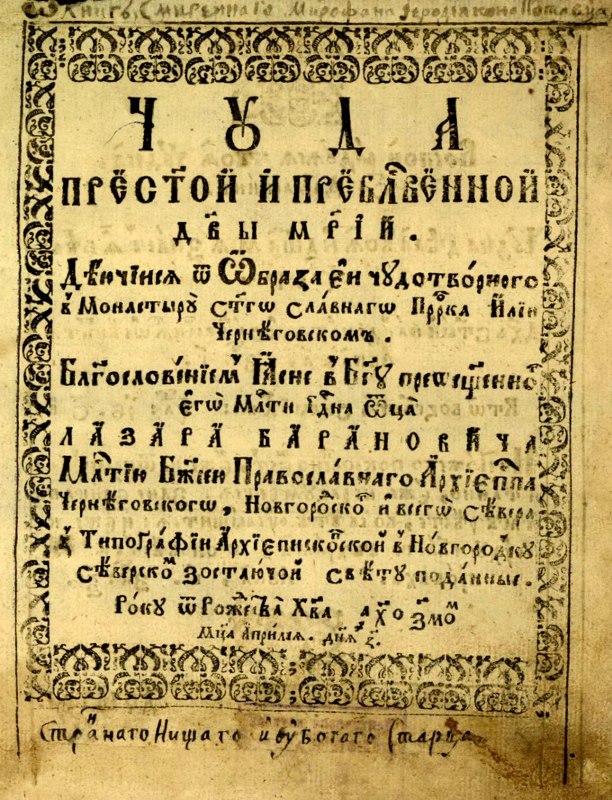 Ѿ Книгъ Смиреннаго Мирофана Іеродіякона
ЧꙊДА
ПРЕС͠ТОЙ Й ПРЕБЛ͠ГВЕННОЙ
Д͠ВЫ М͠РІЙ.
Дѣючіися ѿ Ѡбраза Еѝ чудотворного
в̾ Монастырꙋ С͠тгѡ Славнагѡ Пр͠рка Иліи
Чернѣговскомъ.
Бл͠гословеніемъ Ясне в̾ Б͠гꙋ преѡсщенно͠г
егѡ Мл͠ти Г͠дна Ѿца
ЛАЗАРА БАРАНОВИЧА
Мл͠тію Б͠жіею Православнаго Архіеп͠па
Чернѣговскогѡ, Новгоро͠дско͠г и всегѡ Сѣвера
з̾ Типоґрафіи Архіепископ͠ской в̾ Новгородкꙋ
Сѣверско͠м Зостаючой Свѣтꙋ поданные.
Рокꙋ ѿ Рож͠ества Х͠ва ҂аховомъ
М͠ца Априлія. дня
Страннаго Нищаго и ꙋбогаго Старца